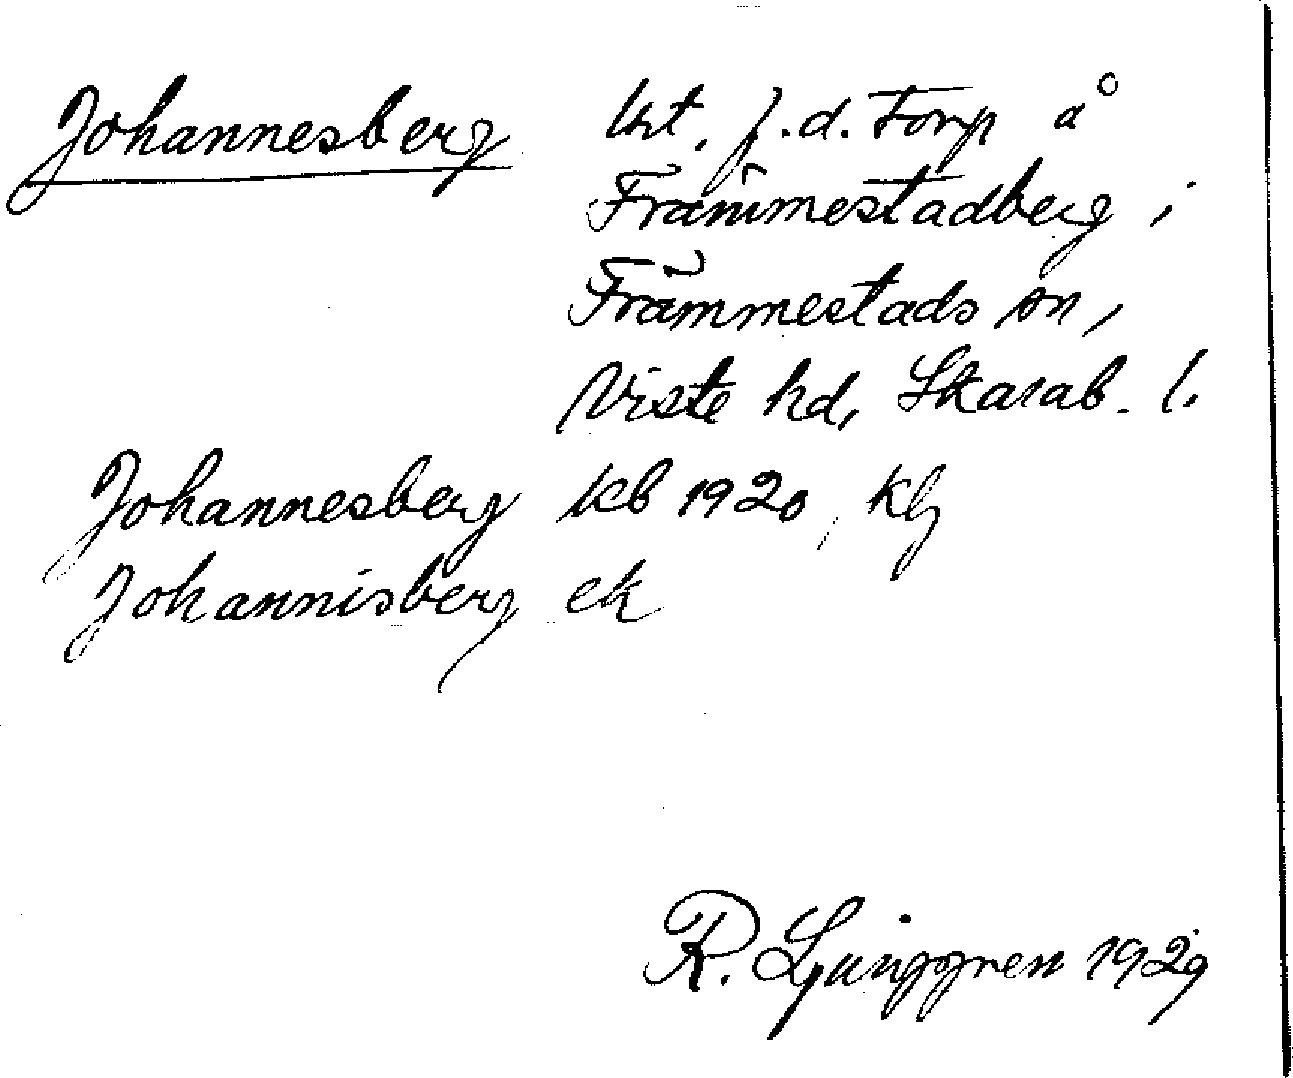 Johannesberg lht. f.d. torp å
Främmestadberg i
Främmestads sn,
Viste hd, Skarab. l.
Johannesberg kb 1920, klj
Johannisberg ek
R. Ljunggren 1929